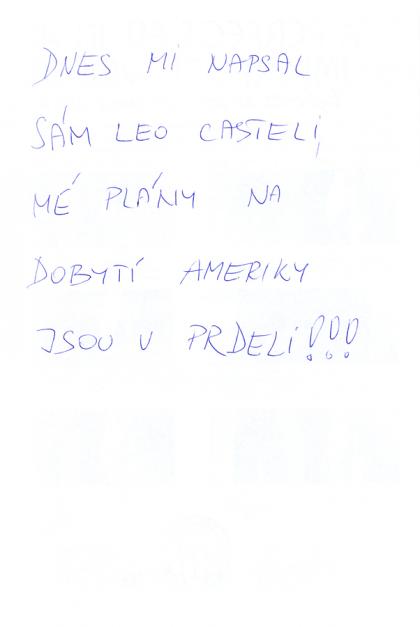 DNES MI NAPSAL
SÁM LEO CASTELi,
MÉ PLÁNY NA
DOBYTÍ AMERIKY
JSOU V PRDELi!!!